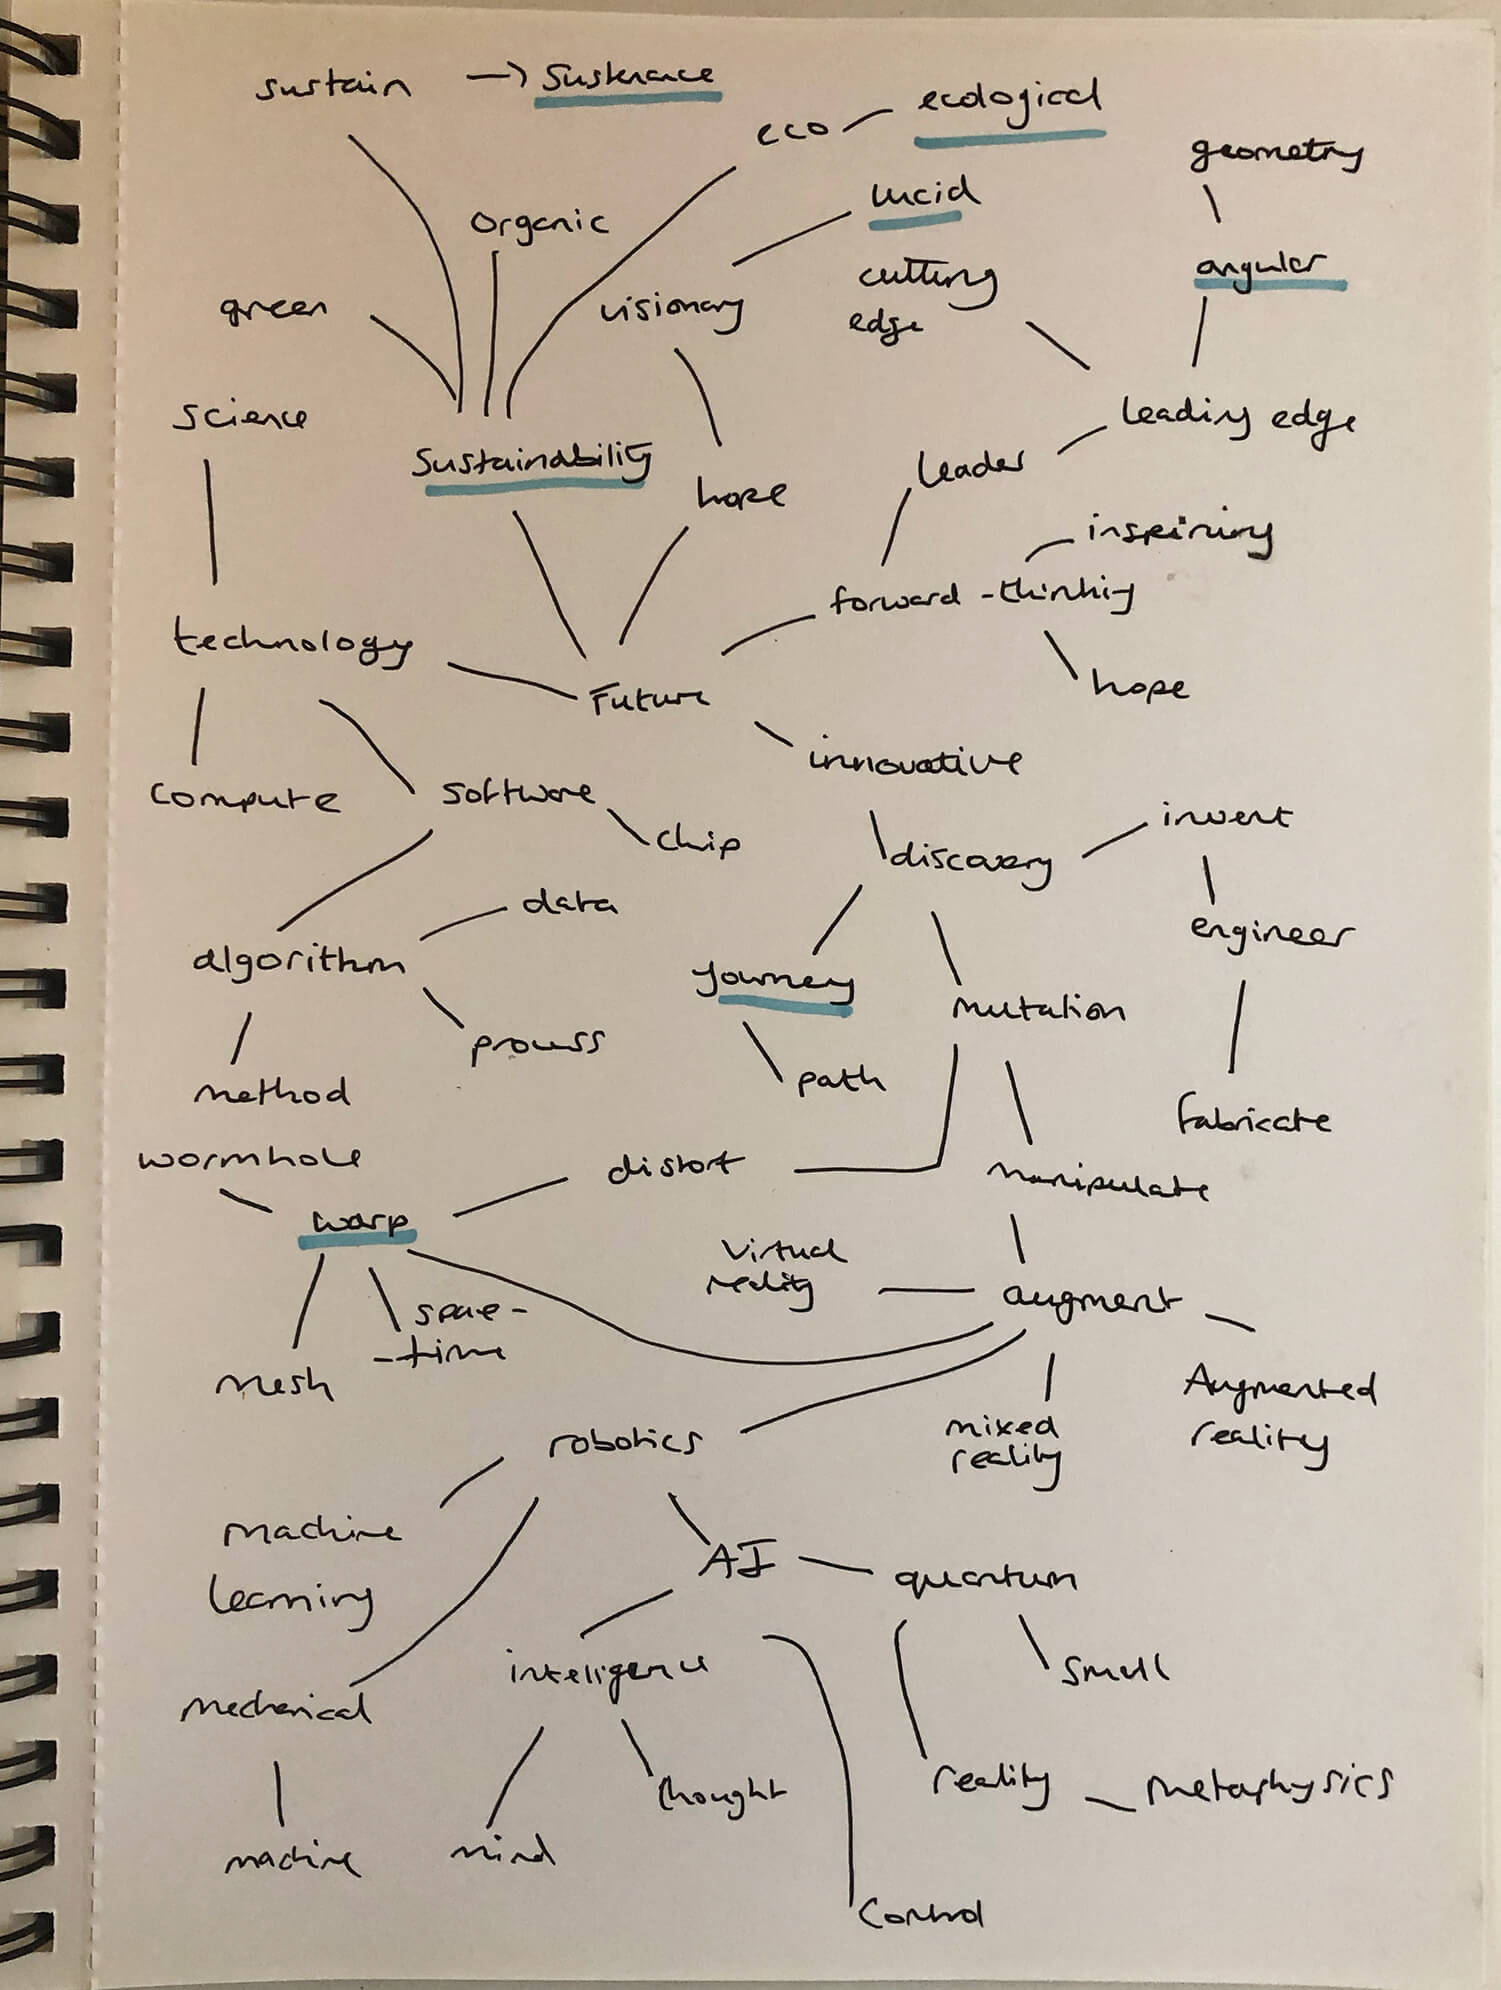 sustain → Sustenance
eco
ecological
geometry
lucid
organic
angular
cutting
edge
green
visionary
science
leading edge
Sustainability
leader
hope
inspiring
forward-thinking
technology
hope
Future
innovative
compute
software
chip
invent
discovery
data
engineer
algorithm
Journey
mutation
process
path
method
fabricate
wormhole
distort
manipulate
warp
virtual
reality
augment
space-
-time
mesh
Augmented
reality
mixed
reality
robotics
machine
learning
AI
quantum
inteligence
small
mechanical
thought
reality
metaphysics
machine
mind
Control